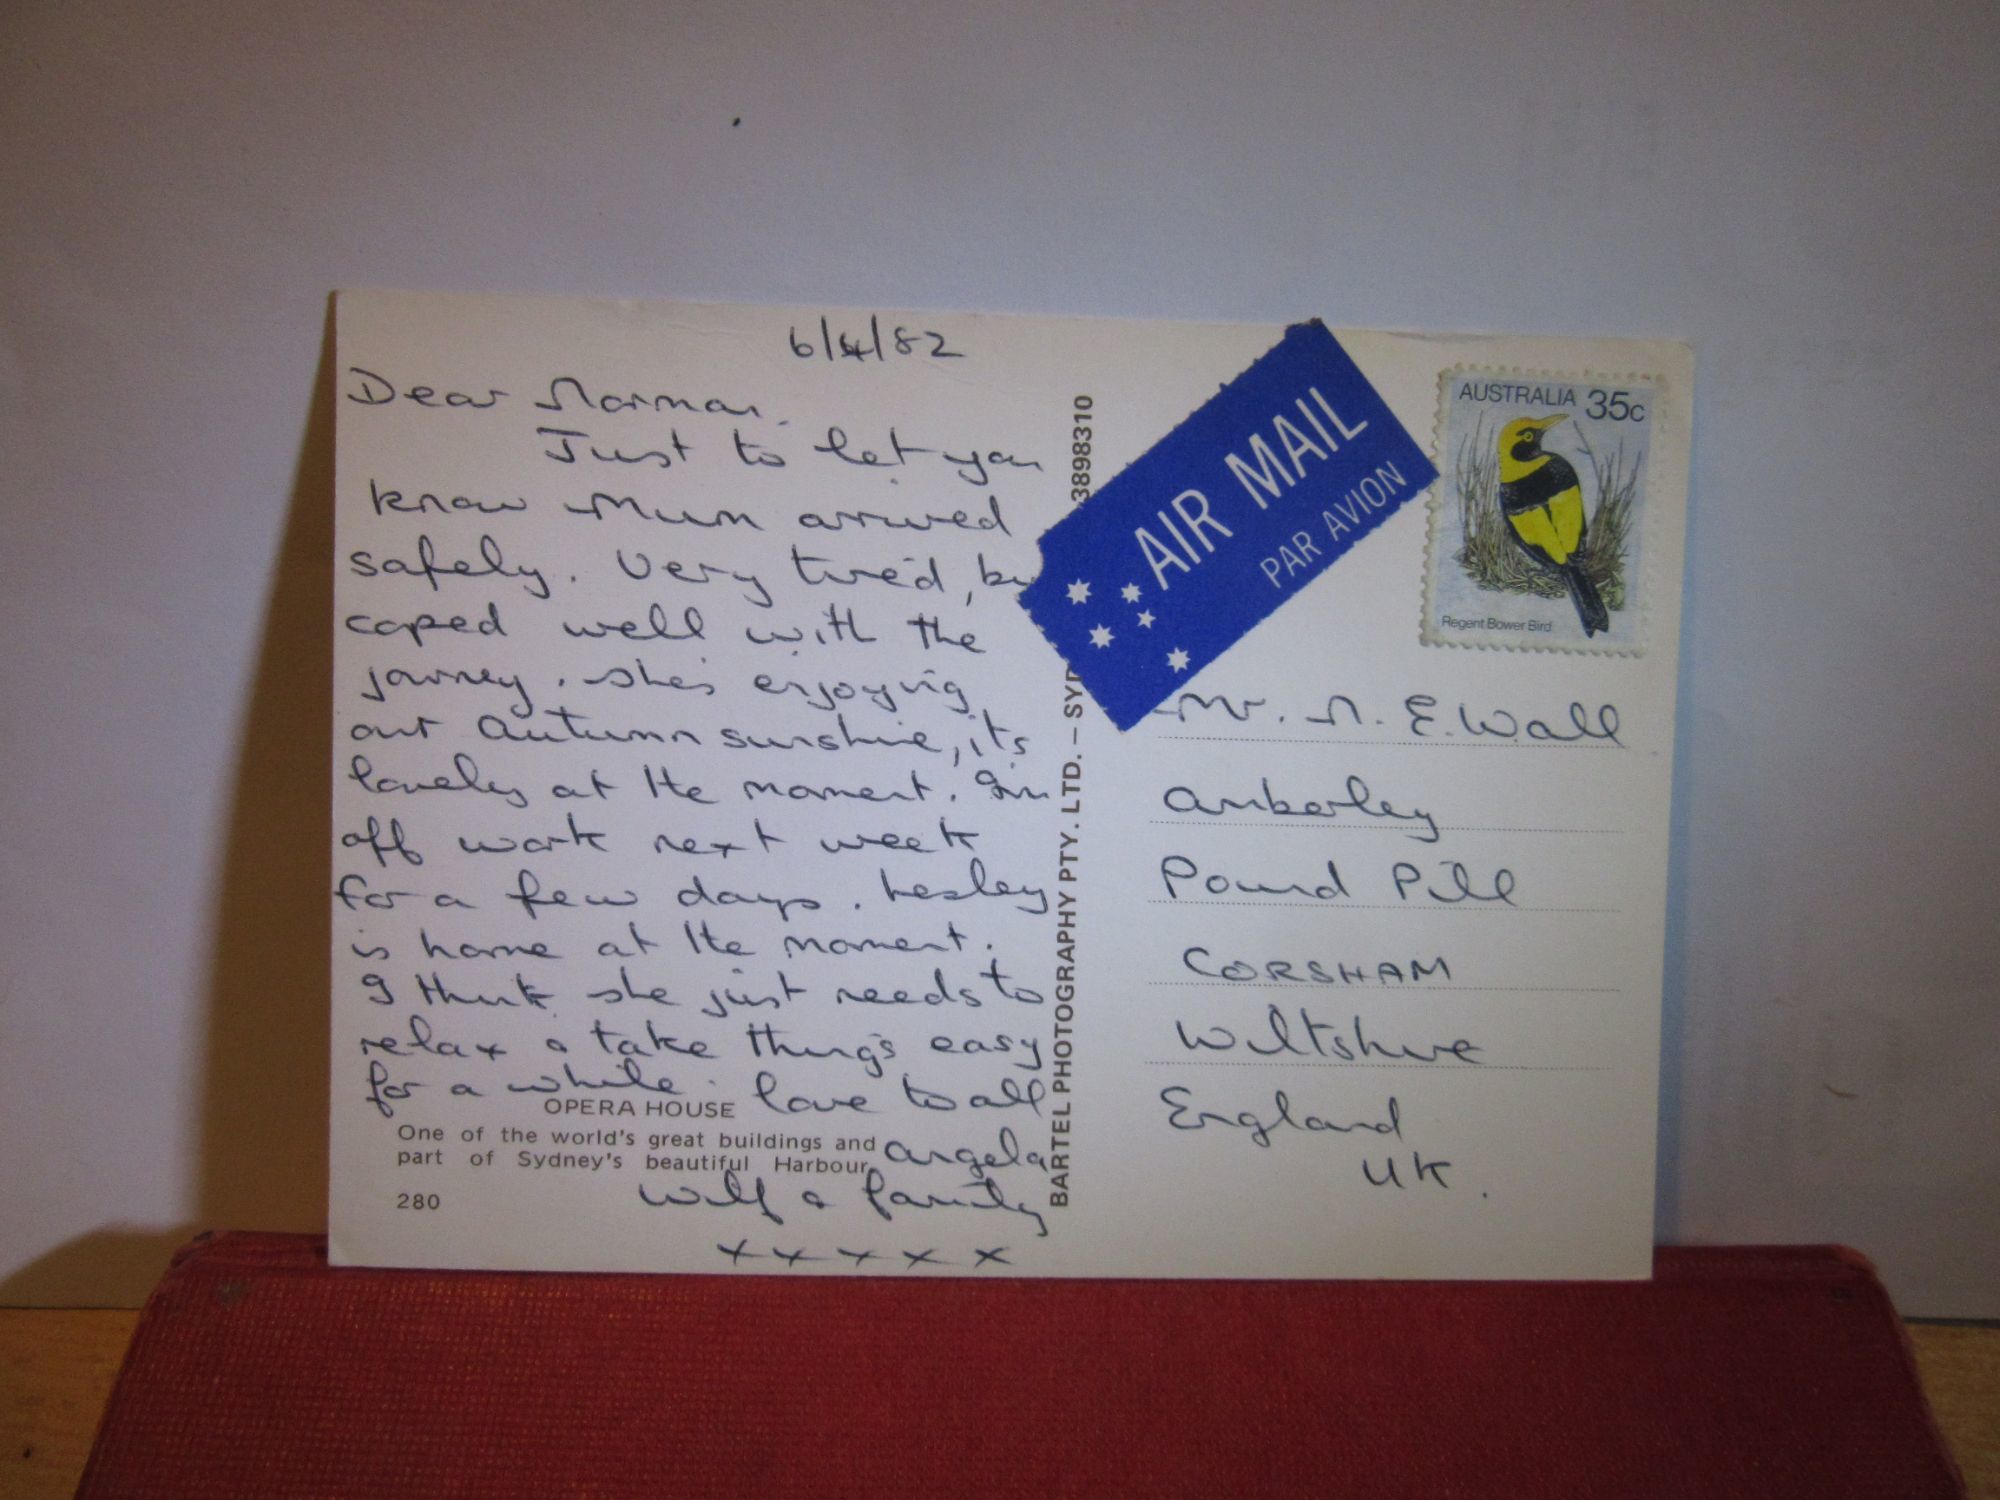 6/4/82
Dear Norman.
Just to let you
know Mum arrived
safely. Very tired, bu
coped well with the
journey. She's enjoying
our Autumn sunshine, it's
lovely at the moment. I'm
off work next week
for a few days. Lesley
is home at the moment.
I think she just needs to
relax & take things easy
for a while. love to all
Angela
Wilf & family
x x x x x
OPERA HOUSE
One of the world's great buildings and
part of Sydney's beautiful Harbour.
280
BARTEL PHOTOGRAPHY PTY. LTD. – SYD 3898310
AIR MAIL
PAR AVION
AUSTRALIA 35c
Regent Bower Bird
Mr. N. E. Wall
Amberley
Pound Pill
CORSHAM
Wiltshire
England
UK.